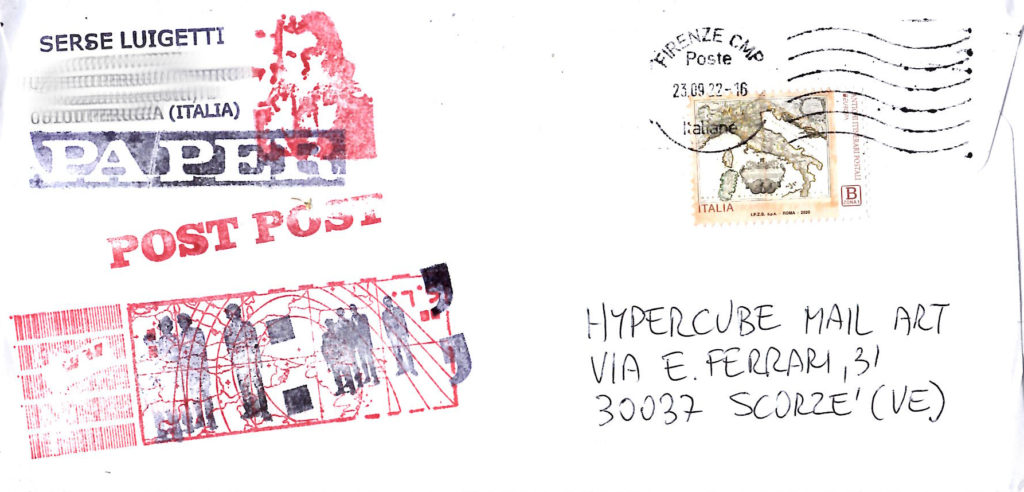 SERSE LUIGETTI
(ITALIA)
PAPER
POST POST
FIRENZE CMP
Poste
23.09.22-16
Italiane
ANTICHI ITINERARI POSTALI
ITALIA
I.P.Z.S. S.p.A. - ROMA - 2020
B
ZONA 1
HYPERCUBE MAIL ART
VIA E. FERRARI, 31
30037 SCORZE' (VE)